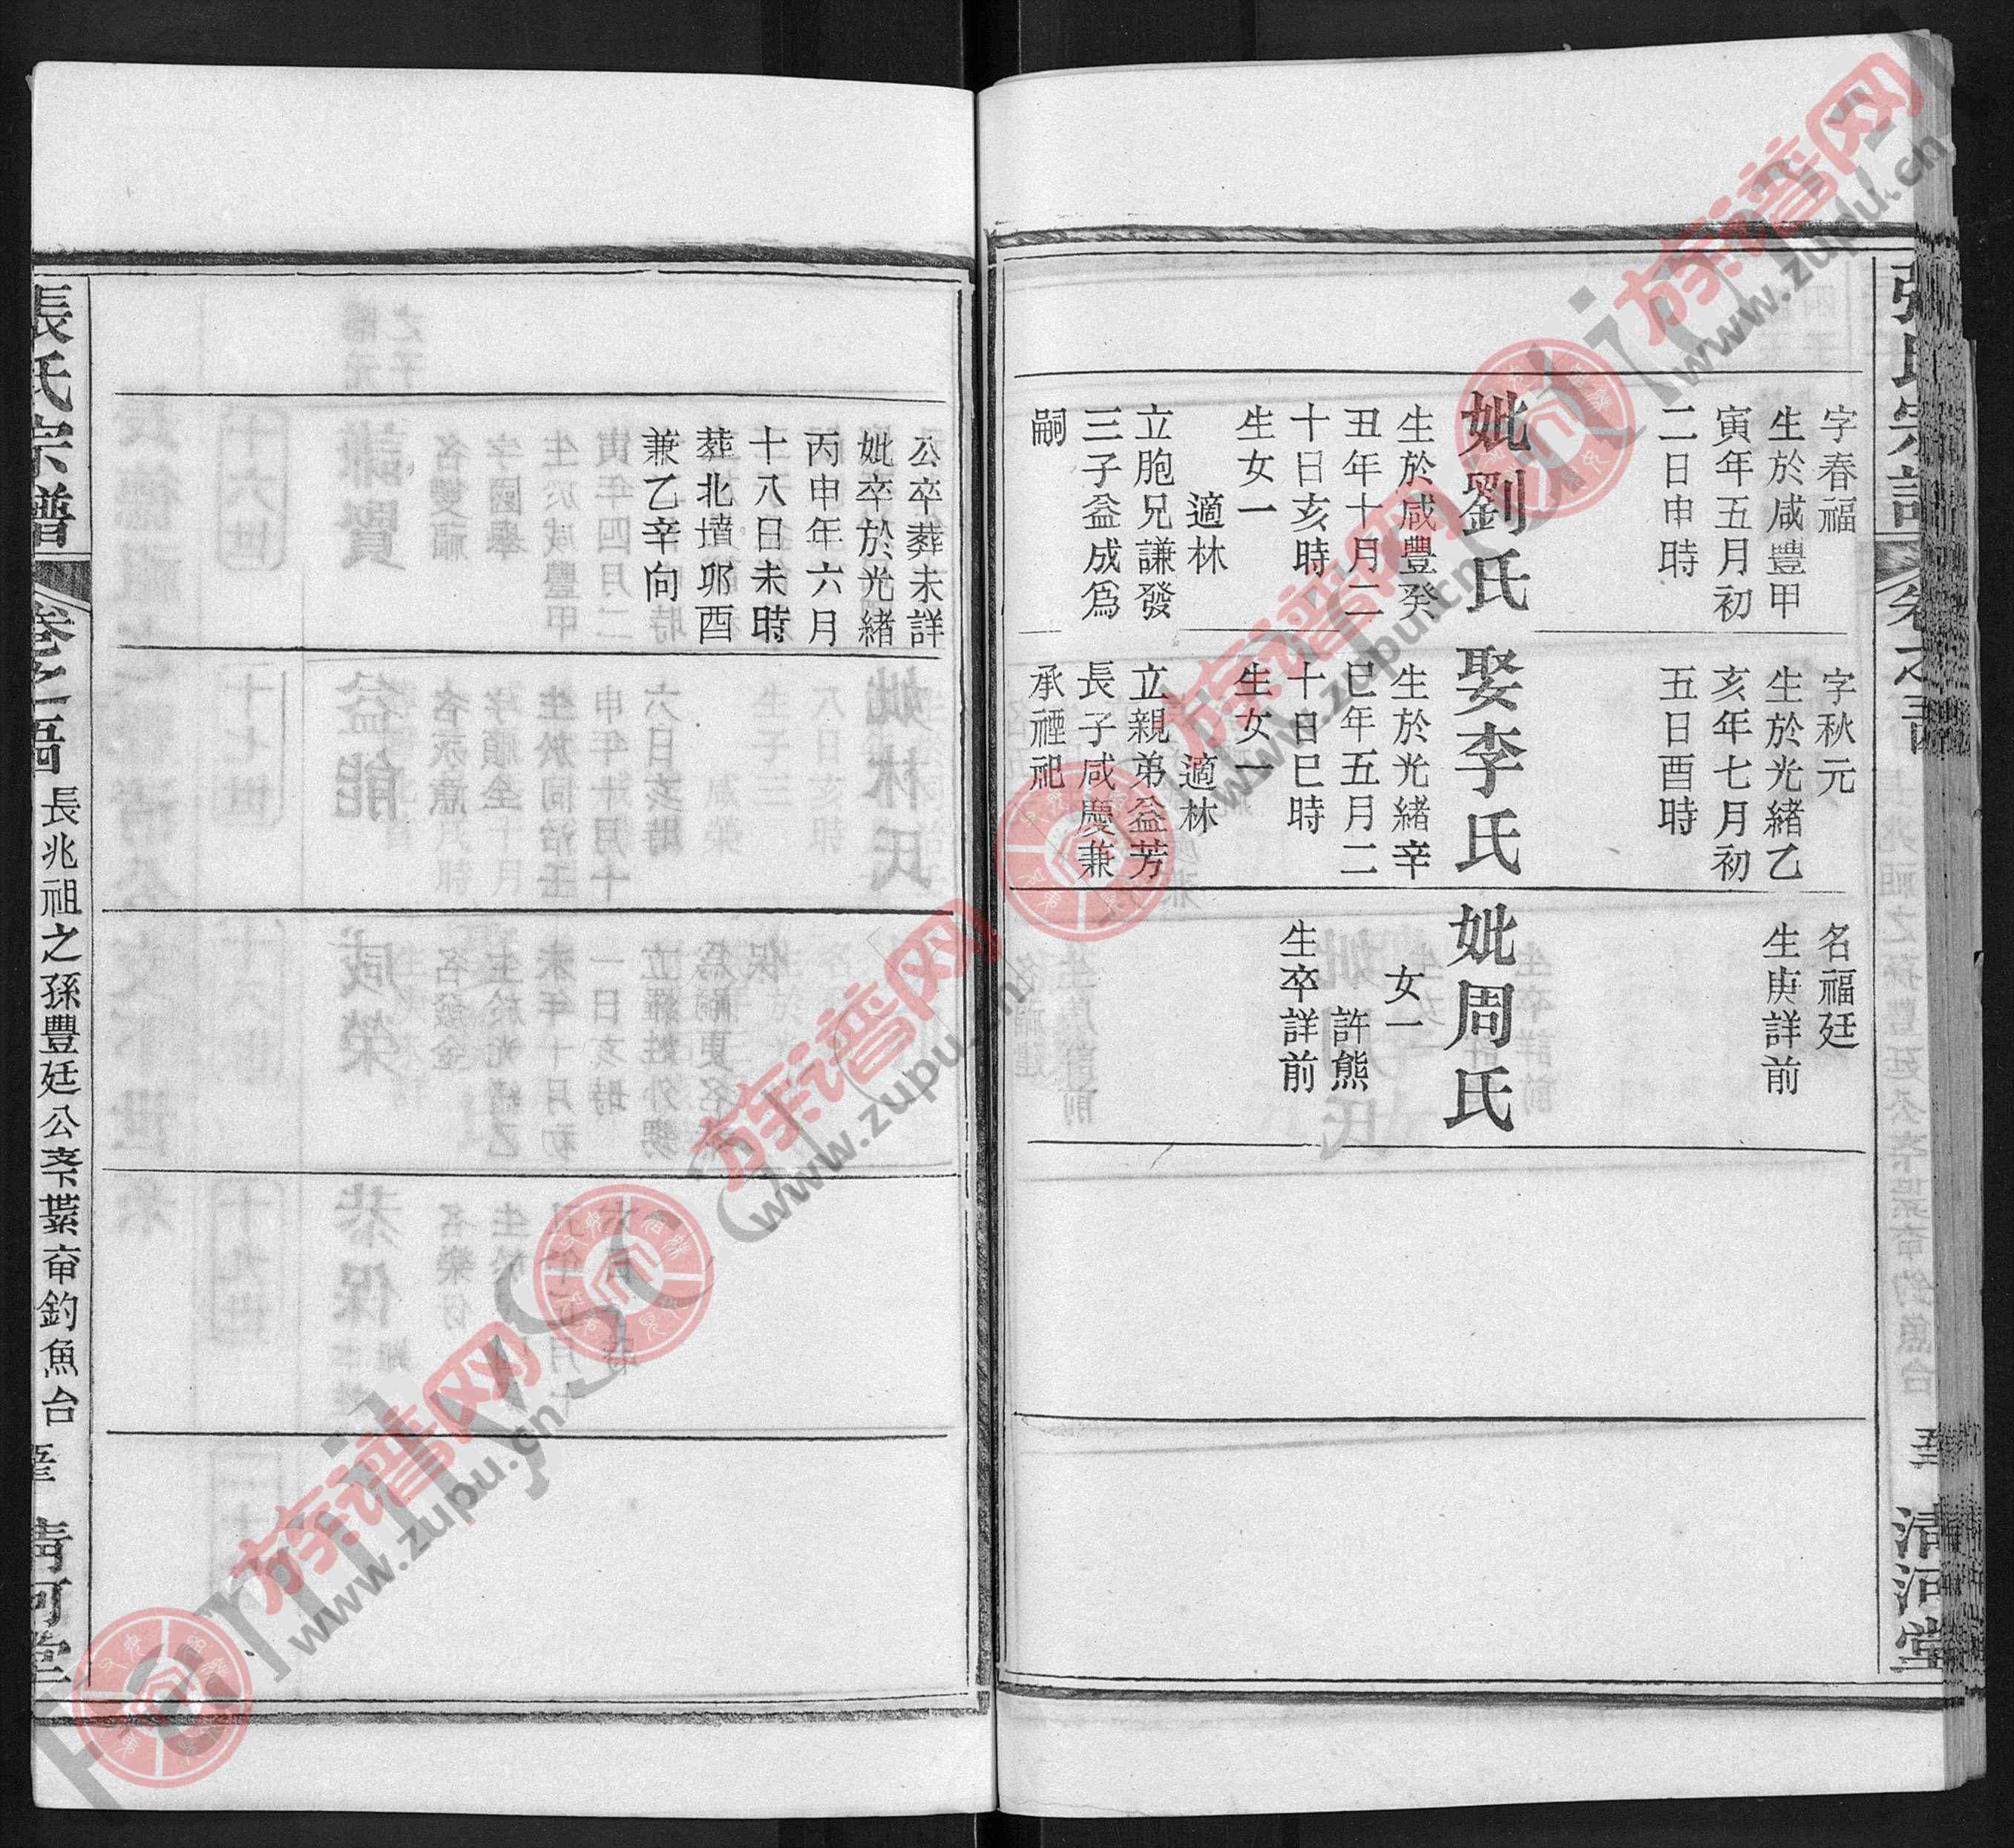 張氏宗譜
清河堂
字春福
生於咸豐甲
寅年五月初
二日申時
妣劉氏
生於咸豐癸
丑年十月二
十日亥時
生女一
適林
立胞兄謙發
三子益成為
嗣
字秋元
生於光緒乙
亥年七月初
五日酉時
娶李氏
生於光緒辛
巳年五月二
十日巳時
生女一
適林
立親弟益芳
長子咸慶兼
承禋祀
名福廷
生庚詳前
妣周氏
女一
許熊
生卒詳前
公卒葬未詳
妣卒於光緒
丙申年六月
十八日未時
葬北墳卯酉
兼乙辛向
張氏宗譜
卷之
長兆祖之孫豐廷公支下業甭釣魚台
清河堂
族谱网
www.zupu.cn
族谱网
www.zupu.cn
族谱网
www.zupu.cn
族谱网
www.zupu.cn